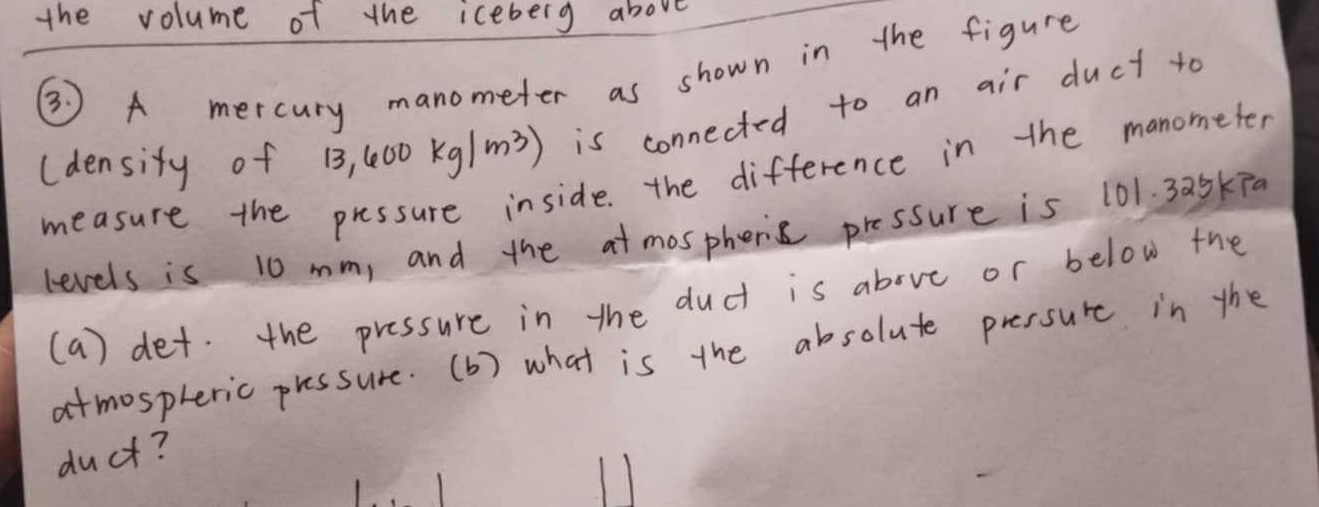 the volume of the iceberg above
3. A mercury manometer as shown in the figure
(density of 13,600 kg/m3) is connected to an air duct to
measure the pressure inside. the difference in the manometer
levels is 10 mm, and the atmospheric pressure is 101.325kPa
(a) det. the pressure in the duct is above or below the
atmospheric pressure. (b) what is the absolute pressure in the
duct?